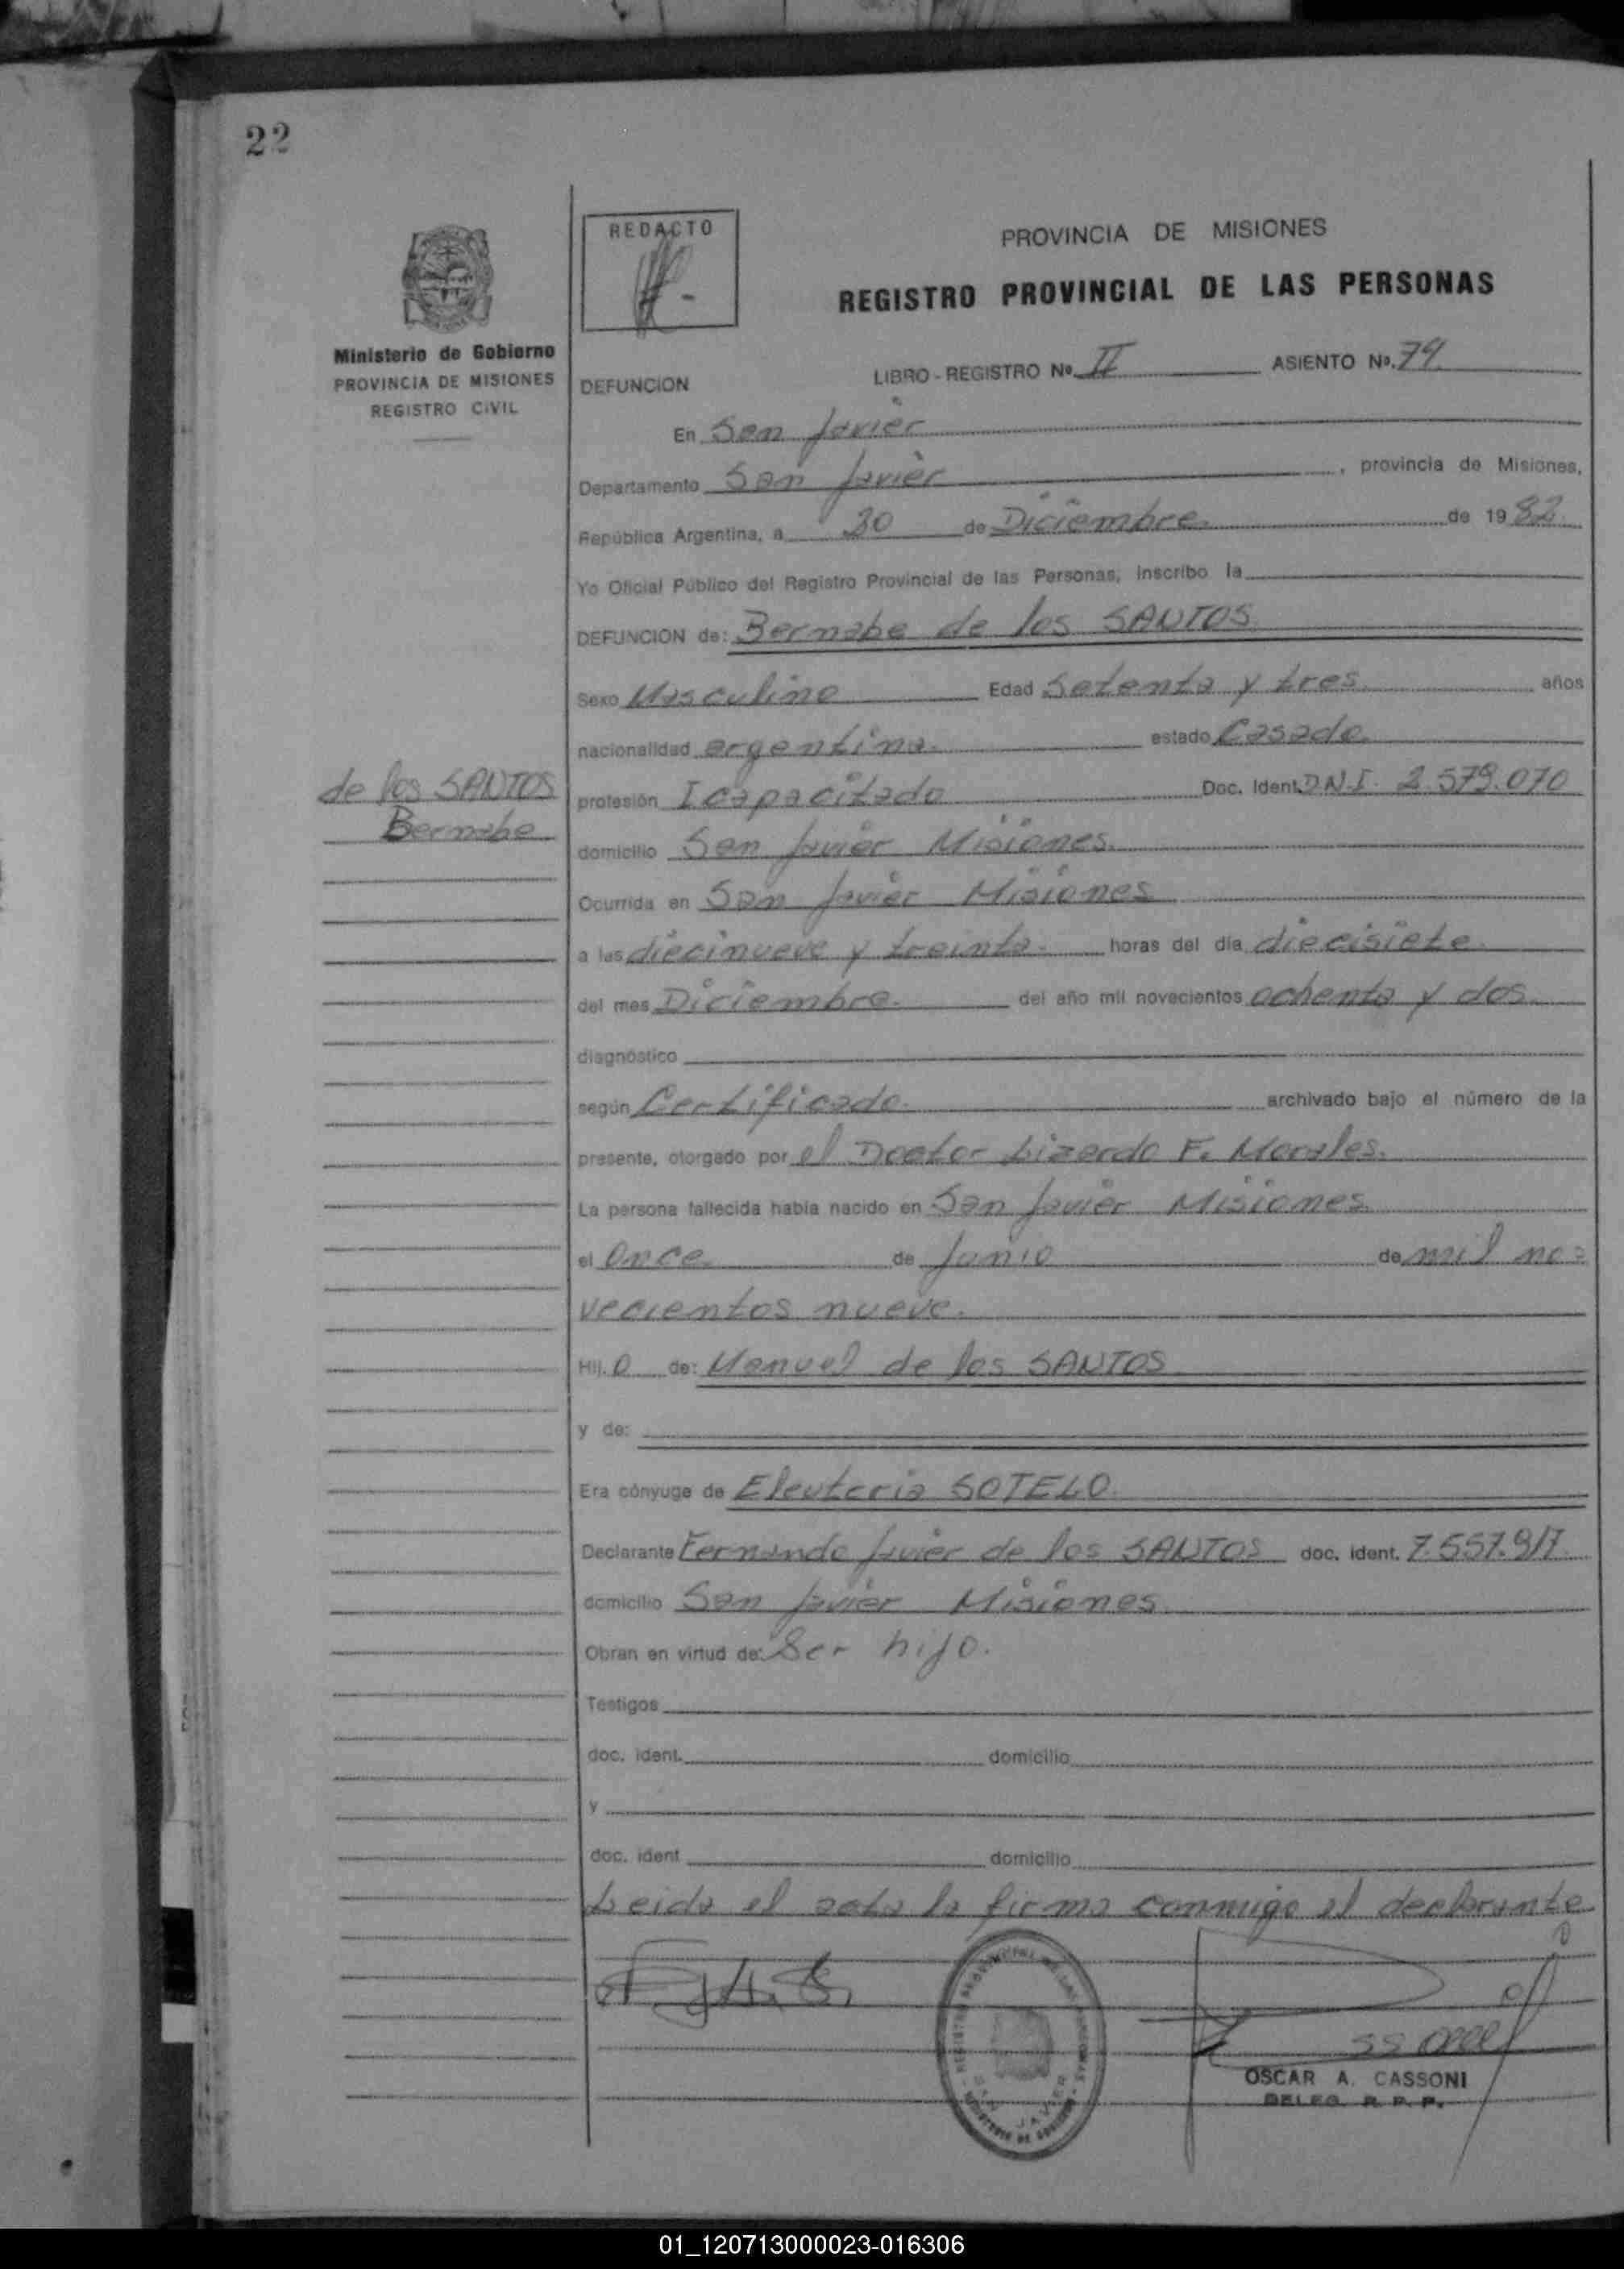 22
REDACTO
PROVINCIA DE MISIONES
REGISTRO PROVINCIAL DE LAS PERSONAS
Ministerio de Gobierno
PROVINCIA DE MISIONES
REGISTRO CIVIL
DEFUNCION LIBRO - REGISTRO Nº II ASIENTO Nº. 74.
En San Javier
Departamento San Javier, provincia de Misiones,
República Argentina, a 30 de Diciembre de 1982.
Yo Oficial Público del Registro Provincial de las Personas, inscribo la
DEFUNCION de: Bernabe de los SANTOS
Sexo Masculino Edad Setenta y tres años
nacionalidad argentina. estado Casado.
de los SANTOS
Bernabe
profesión Icapacitado Doc. Ident. D.N.I. 2.579.070
domicilio San Javier Misiones.
Ocurrida en San Javier Misiones
a las diecinueve y treinta. horas del día diecisiete.
del mes Diciembre. del año mil novecientos ochenta y dos.
diagnóstico
según Certificado. archivado bajo el número de la
presente, otorgado por el Doctor Lizardo F. Morales.
La persona fallecida había nacido en San Javier Misiones.
el Once. de Junio de mil no=
vecientos nueve.
Hij.o de: Manuel de los SANTOS
y de:
Era cónyuge de Eleuteria SOTELO.
Declarante Fernando Javier de los SANTOS doc. ident. 7.557.917.
domicilio San Javier Misiones.
Obran en virtud de: Ser hijo.
Testigos
doc. ident. domicilio
y
doc. ident domicilio
Leida el acta la firma conmigo el declarante
OSCAR A. CASSONI
DELEG. R. P. P.
01_120713000023-016306